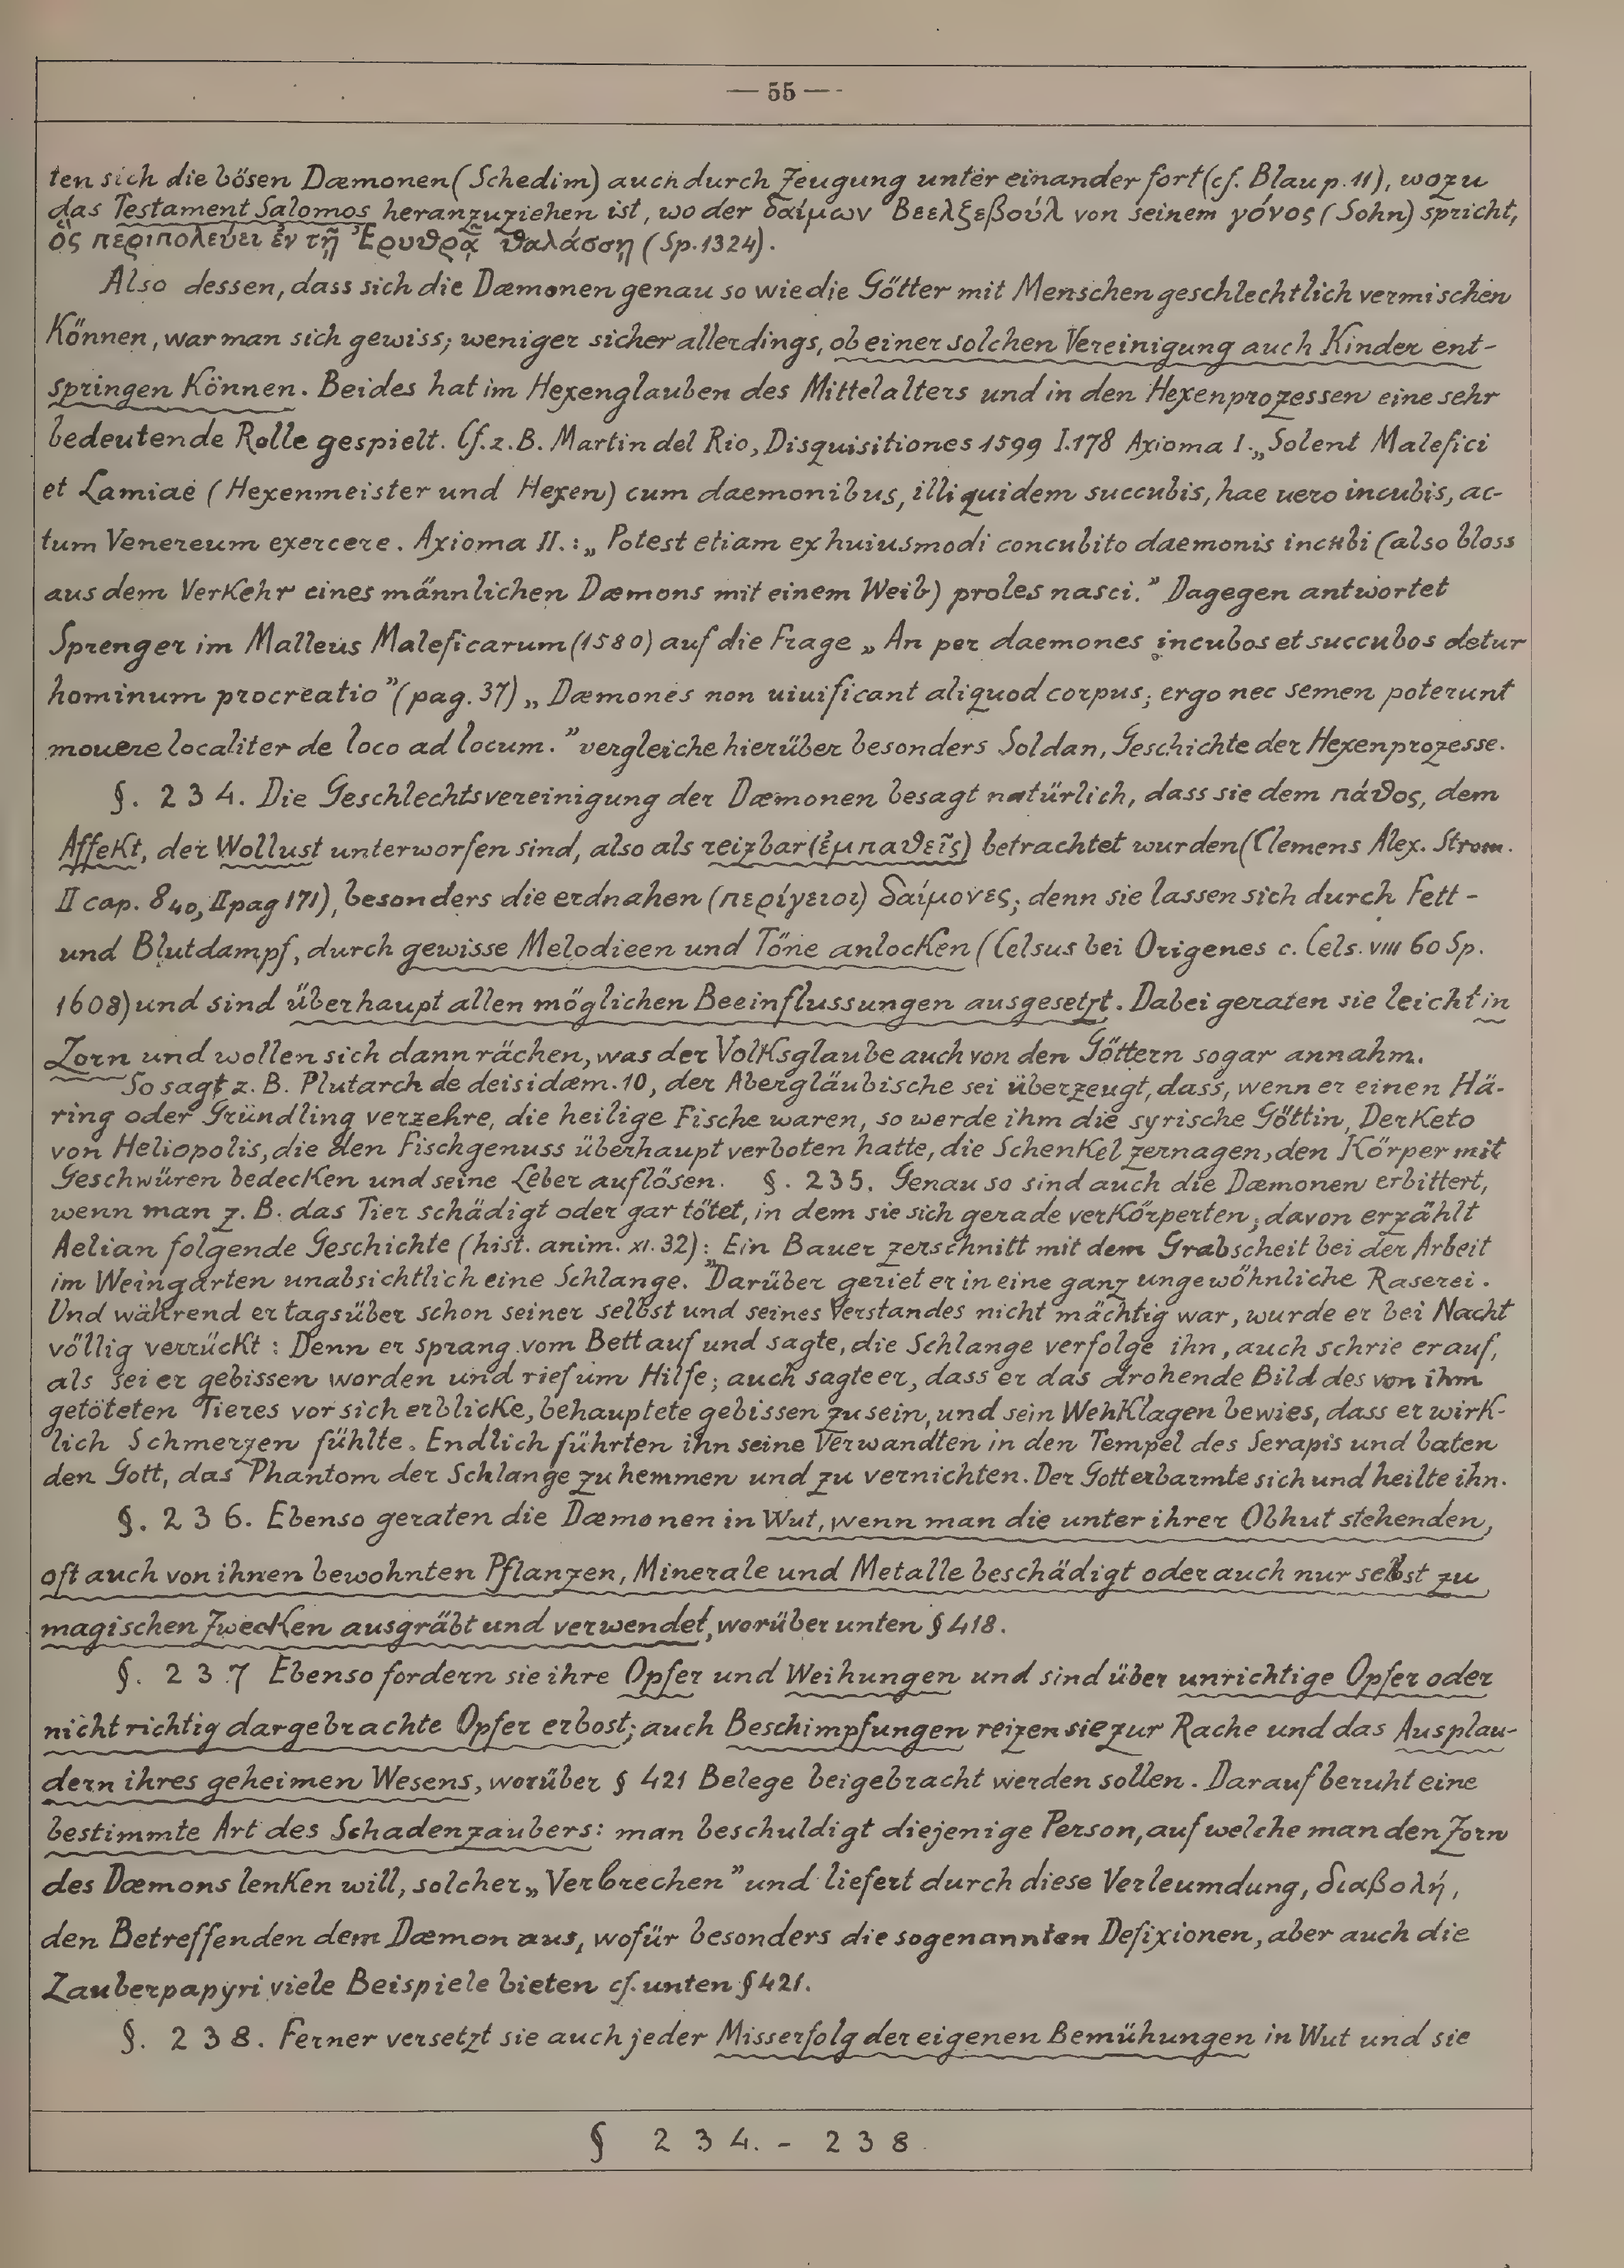 — 55 —
ten sich die bösen Dæmonen (Schedim) auch durch Zeugung unter einander fort (cf. Blau p. 11), wozu
das Testament Salomos heranzuziehen ist, wo der δαίμων Βεελζεβούλ von seinem γόνος (Sohn) spricht,
ὃς περιπολεύει ἐν τῇ Ἐρυθρᾷ θαλάσσῃ (Sp. 1324).
Also dessen, dass sich die Dæmonen genau so wie die Götter mit Menschen geschlechtlich vermischen
Können, war man sich gewiss; weniger sicher allerdings, ob einer solchen Vereinigung auch Kinder ent-
springen Können. Beides hat im Hexenglauben des Mittelalters und in den Hexenprozessen eine sehr
bedeutende Rolle gespielt. Cf. z. B. Martin del Rio, Disquisitiones 1599 I. 178 Axioma I. „Solent Malefici
et Lamiae (Hexenmeister und Hexen) cum daemonibus, illi quidem succubis, hae uero incubis, ac-
tum Venereum exercere. Axioma II.: „Potest etiam ex huiusmodi concubito daemonis incubi (also bloss
aus dem Verkehr eines männlichen Dæmons mit einem Weib) proles nasci.” Dagegen antwortet
Sprenger im Malleus Maleficarum (1580) auf die Frage „An per daemones incubos et succubos detur
hominum procreatio” (pag. 37) „Dæmones non uiuificant aliquod corpus; ergo nec semen poterunt
mouere localiter de loco ad locum.” vergleiche hierüber besonders Soldan, Geschichte der Hexenprozesse.
§. 234. Die Geschlechtsvereinigung der Dæmonen besagt natürlich, dass sie dem πάθος, dem
Affekt, der Wollust unterworfen sind, also als reizbar (ἐμπαθεῖς) betrachtet wurden (Clemens Alex. Strom.
II cap. 8 40, II pag 171), besonders die erdnahen (περίγειοι) δαίμονες; denn sie lassen sich durch Fett-
und Blutdampf, durch gewisse Melodieen und Töne anlocken (Celsus bei Origenes c. Cels. VIII 60 Sp.
1608) und sind überhaupt allen möglichen Beeinflussungen ausgesetzt. Dabei geraten sie leicht in
Zorn und wollen sich dann rächen, was der Volksglaube auch von den Göttern sogar annahm.
So sagt z. B. Plutarch de deisidæm. 10, der Abergläubische sei überzeugt, dass, wenn er einen Hä-
ring oder Gründling verzehre, die heilige Fische waren, so werde ihm die syrische Göttin, Derketo
von Heliopolis, die den Fischgenuss überhaupt verboten hatte, die Schenkel zernagen, den Körper mit
Geschwüren bedecken und seine Leber auflösen. §. 235. Genau so sind auch die Dæmonen erbittert,
wenn man z. B. das Tier schädigt oder gar tötet, in dem sie sich gerade verkörperten; davon erzählt
Aelian folgende Geschichte (hist. anim. XI. 32): „Ein Bauer zerschnitt mit dem Grabscheit bei der Arbeit
im Weingarten unabsichtlich eine Schlange. Darüber geriet er in eine ganz ungewöhnliche Raserei.
Und während er tagsüber schon seiner selbst und seines Verstandes nicht mächtig war, wurde er bei Nacht
völlig verrückt: Denn er sprang vom Bett auf und sagte, die Schlange verfolge ihn, auch schrie er auf,
als sei er gebissen worden und rief um Hilfe; auch sagte er, dass er das drohende Bild des von ihm
getöteten Tieres vor sich erblicke, behauptete gebissen zu sein, und sein Wehklagen bewies, dass er wirk-
lich Schmerzen fühlte. Endlich führten ihn seine Verwandten in den Tempel des Serapis und baten
den Gott, das Phantom der Schlange zu hemmen und zu vernichten. Der Gott erbarmte sich und heilte ihn.
§. 236. Ebenso geraten die Dæmonen in Wut, wenn man die unter ihrer Obhut stehenden,
oft auch von ihnen bewohnten Pflanzen, Minerale und Metalle beschädigt oder auch nur selbst zu
magischen Zwecken ausgräbt und verwendet, worüber unten § 418.
§. 237 Ebenso fordern sie ihre Opfer und Weihungen und sind über unrichtige Opfer oder
nicht richtig dargebrachte Opfer erbost; auch Beschimpfungen reizen sie zur Rache und das Ausplau-
dern ihres geheimen Wesens, worüber § 421 Belege beigebracht werden sollen. Darauf beruht eine
bestimmte Art des Schadenzaubers: man beschuldigt diejenige Person, auf welche man den Zorn
des Dæmons lenken will, solcher „Verbrechen” und liefert durch diese Verleumdung, διαβολή,
den Betreffenden dem Dæmon aus, wofür besonders die sogenannten Defixionen, aber auch die
Zauberpapyri viele Beispiele bieten cf. unten § 421.
§. 238. Ferner versetzt sie auch jeder Misserfolg der eigenen Bemühungen in Wut und sie
§ 234. - 238